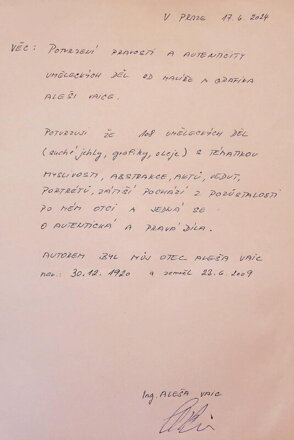 V PRAZE 17.6.2024
VĚC: POTVRZENÍ PRAVOSTI A AUTENTICITY
UMĚLECKÝCH DĚL OD MALÍŘE A GRAFIKA
ALEŠI VAIC.
POTVRZUJI ŽE 108 UMĚLECKÝCH DĚL
(suché jehly, grafiky, oleje) S TÉMATIKOU
MYSLIVOSTI, ABSTRAKCE, AKTŮ, VEDUT,
PORTRÉTŮ, ZÁTIŠÍ POCHÁZÍ Z POZŮSTALOSTI
PO MÉM OTCI A JEDNÁ SE
O AUTENTICKÁ A PRAVÁ DÍLA.
AUTOREM BYL MŮJ OTEC ALEŠA VAIC
nar.: 30.12.1920 a zemřel 23.6.2009
Ing. ALEŠA VAIC